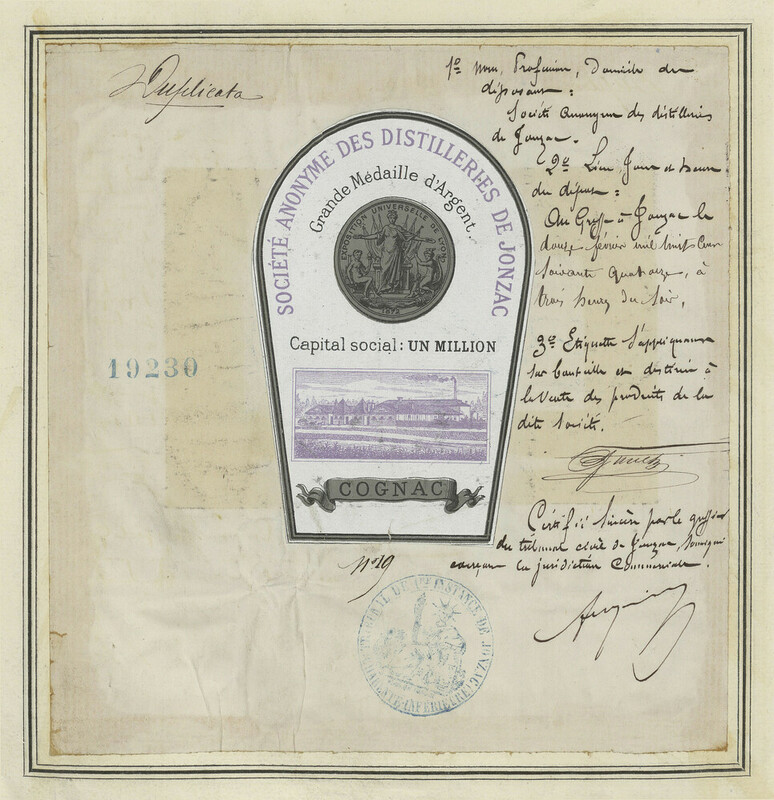 Duplicata
1º Nom, Profession, Domicile du
déposant :
Société Anonyme des distilleries
de Jonzac.
2º Lieu Jour et heure
du dépôt :
Au Greffe à Jonzac le
douze février mil huit cent
soixante quatorze, à
trois heures du soir,
3º Etiquette s'appliquant
sur bouteille et destinée à
la vente des produits de la
dite Société.
Certifié sincère par le greffier
du tribunal civil de Jonzac, soussigné
exerçant la juridiction Commerciale.
SOCIÉTÉ ANONYME DES DISTILLERIES DE JONZAC
Grande Médaille d'Argent.
EXPOSITION UNIVERSELLE DE LYON
1872
Capital social: UN MILLION
COGNAC
19230
Nº 19
TRIBUNAL DE 1RE INSTANCE DE JONZAC
CHARENTE INFERIEURE